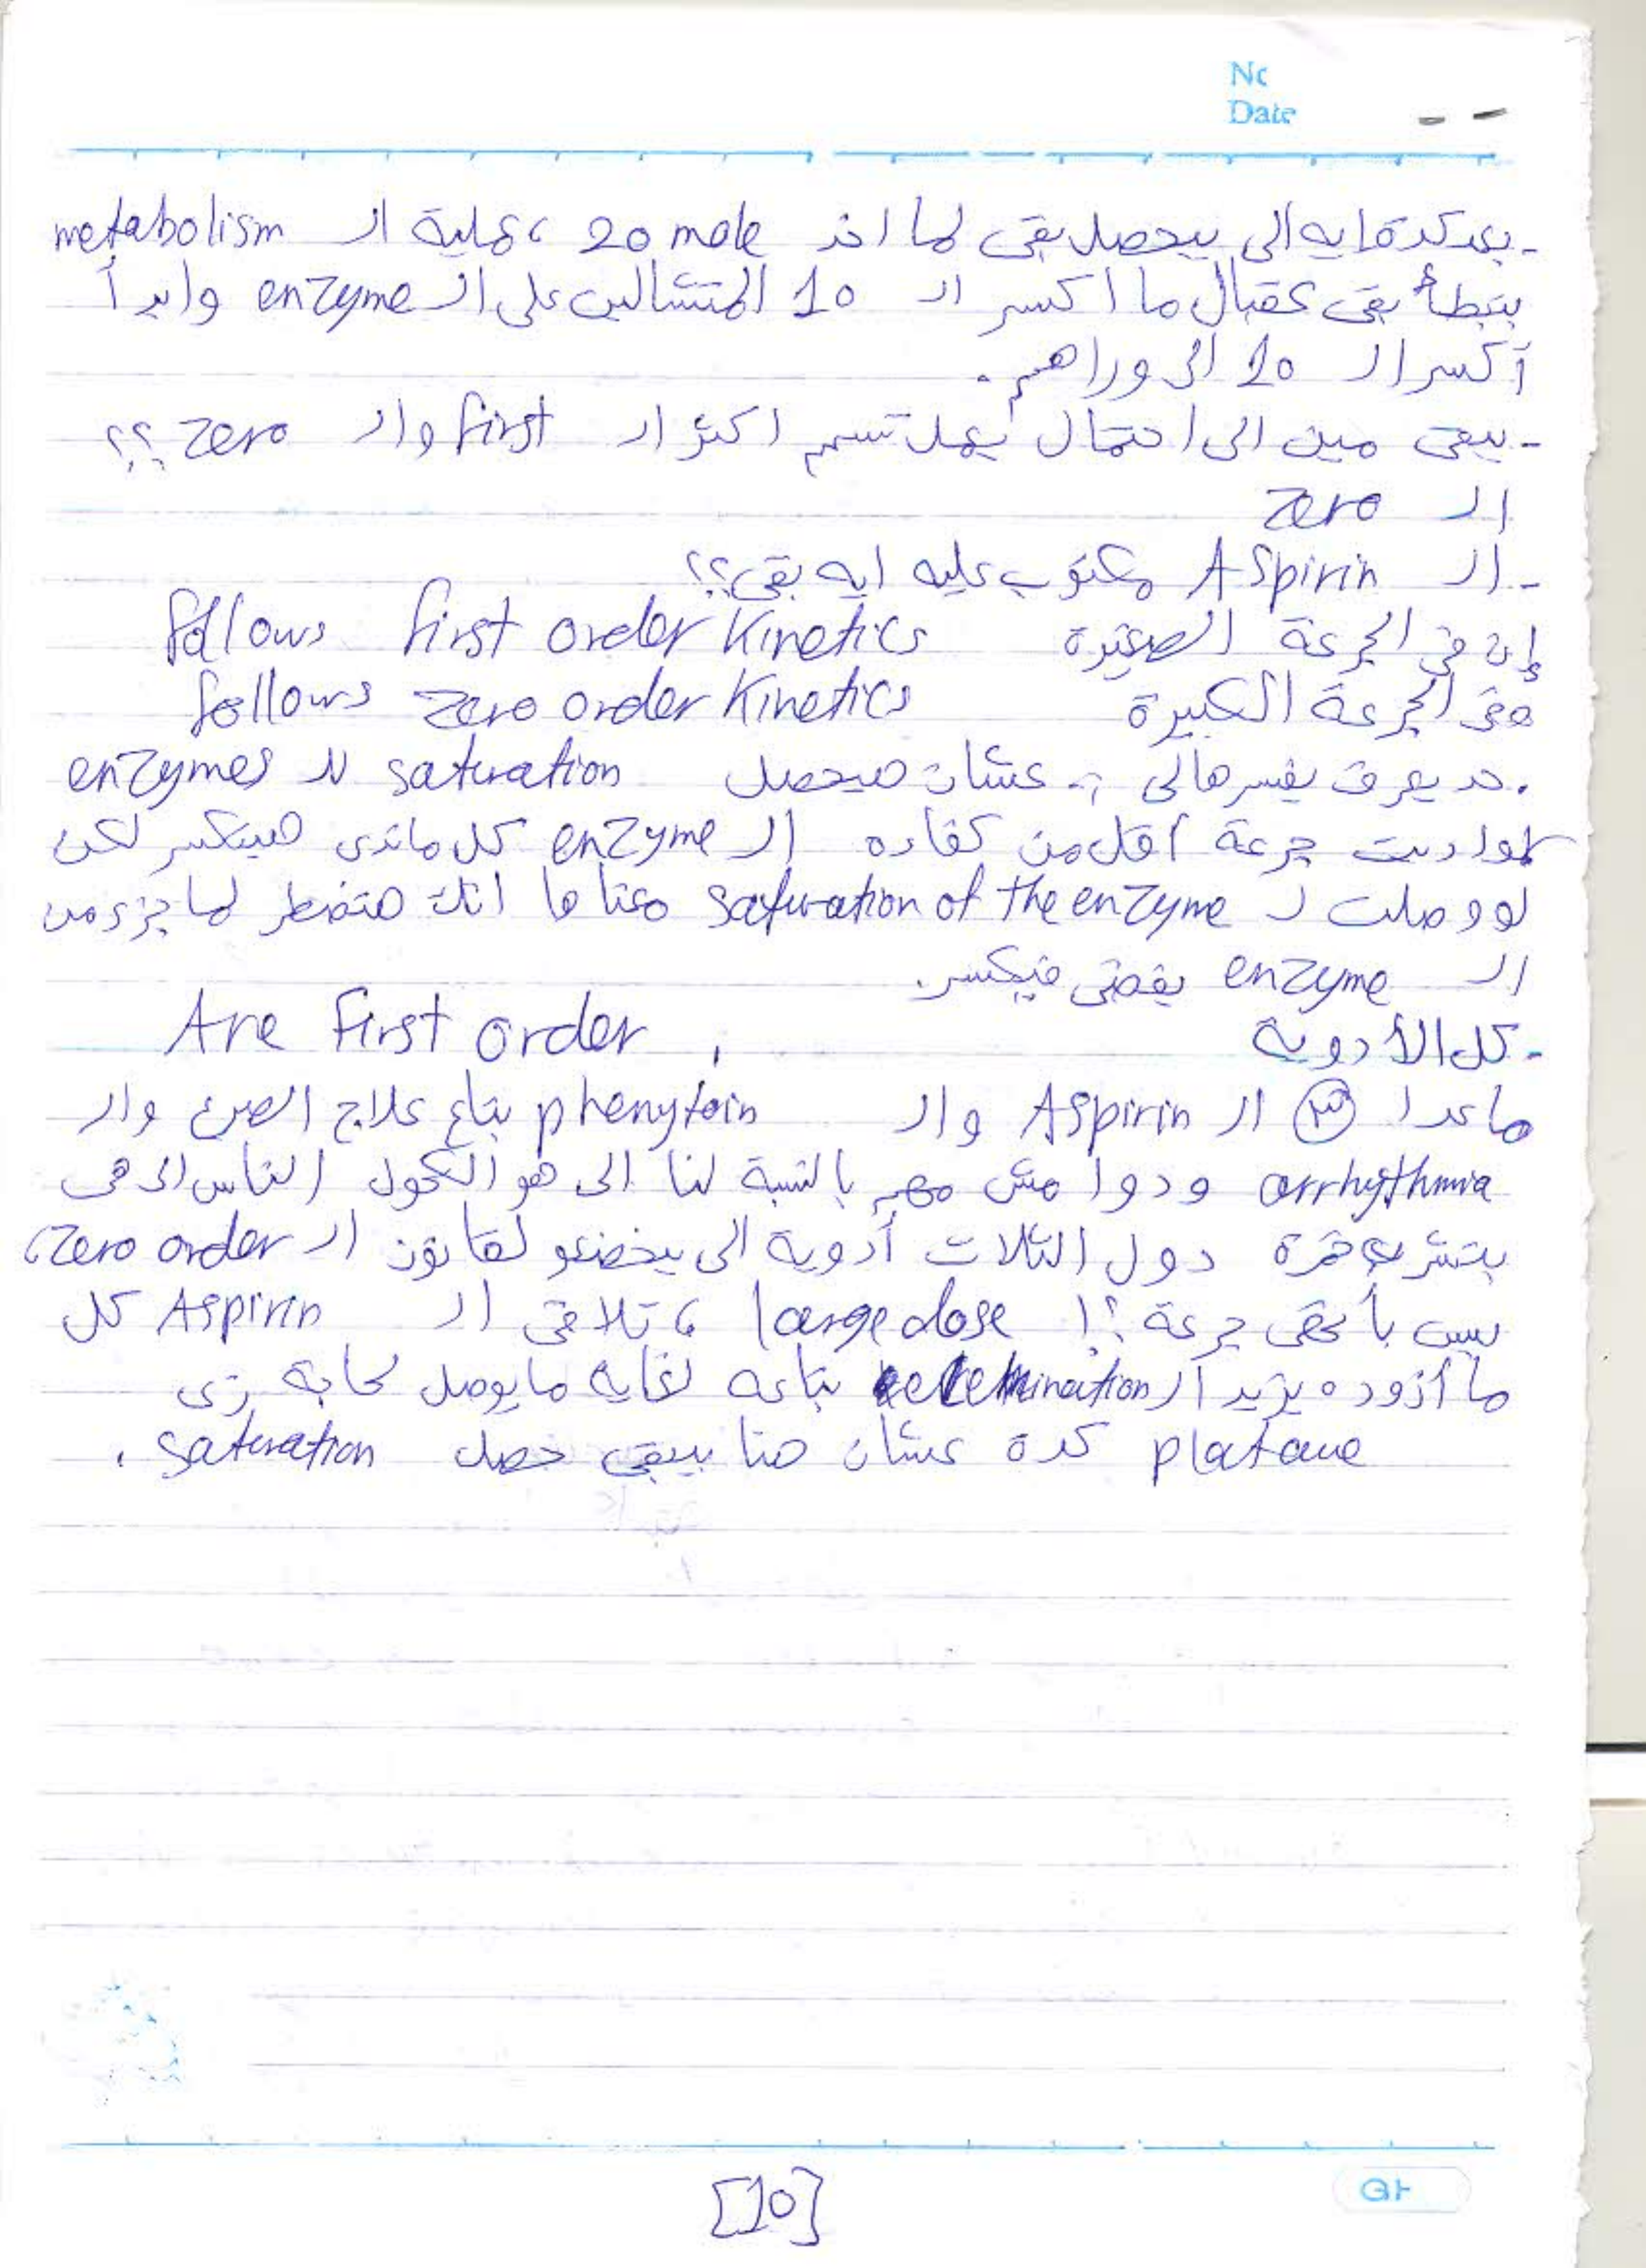 No
Date
- بعد كدة ايه الى بيحصل بقى لما اخد 20 mole ، عملية الـ metabolism
بتبطأ بقى عقبال ما اكسر الـ 10 المتشالين على الـ enzyme وابدأ
أكسر الـ 10 الى وراهم .
- يبقى مين الى احتمال يعمل تسمم اكتر الـ first والـ zero ؟؟
الـ zero
- الـ Aspirin مكتوب عليه ايه بقى ؟؟
إن فى الجرعة الصغيرة follows first order Kinetics
وفى الجرعة الكبيرة follows zero order Kinetics
. حد يعرف يفسرهالى ؟ عشان هيحصل saturation لل enzymes
لو اديت جرعة أقل من كفاءه الـ enzyme كل ماتدى هيتكسر لكن
لو وصلت لـ saturation of the enzyme معناها انك هتضطر لما جزء من
الـ enzyme يفضى فيكسر.
- كل الأدوية Are First order ,
ماعدا ٣ الـ Aspirin والـ phenytoin بتاع علاج الصرع والـ
arrhythmia ودوا مش مهم بالنسبة لنا الى هو الكحول الناس الى هى
بتشرب خمرة دول التلات أدوية الى بيخضعو لقانون الـ zero order،
بس بأنهى جرعة ؟! large dose ، تلاقى الـ Aspirin كل
ما أزوده يزيد الـ elemination بتاعه لغاية ما يوصل لحاجة زى
plataue كدة عشان هنا يبقى حصل saturation .
[10]